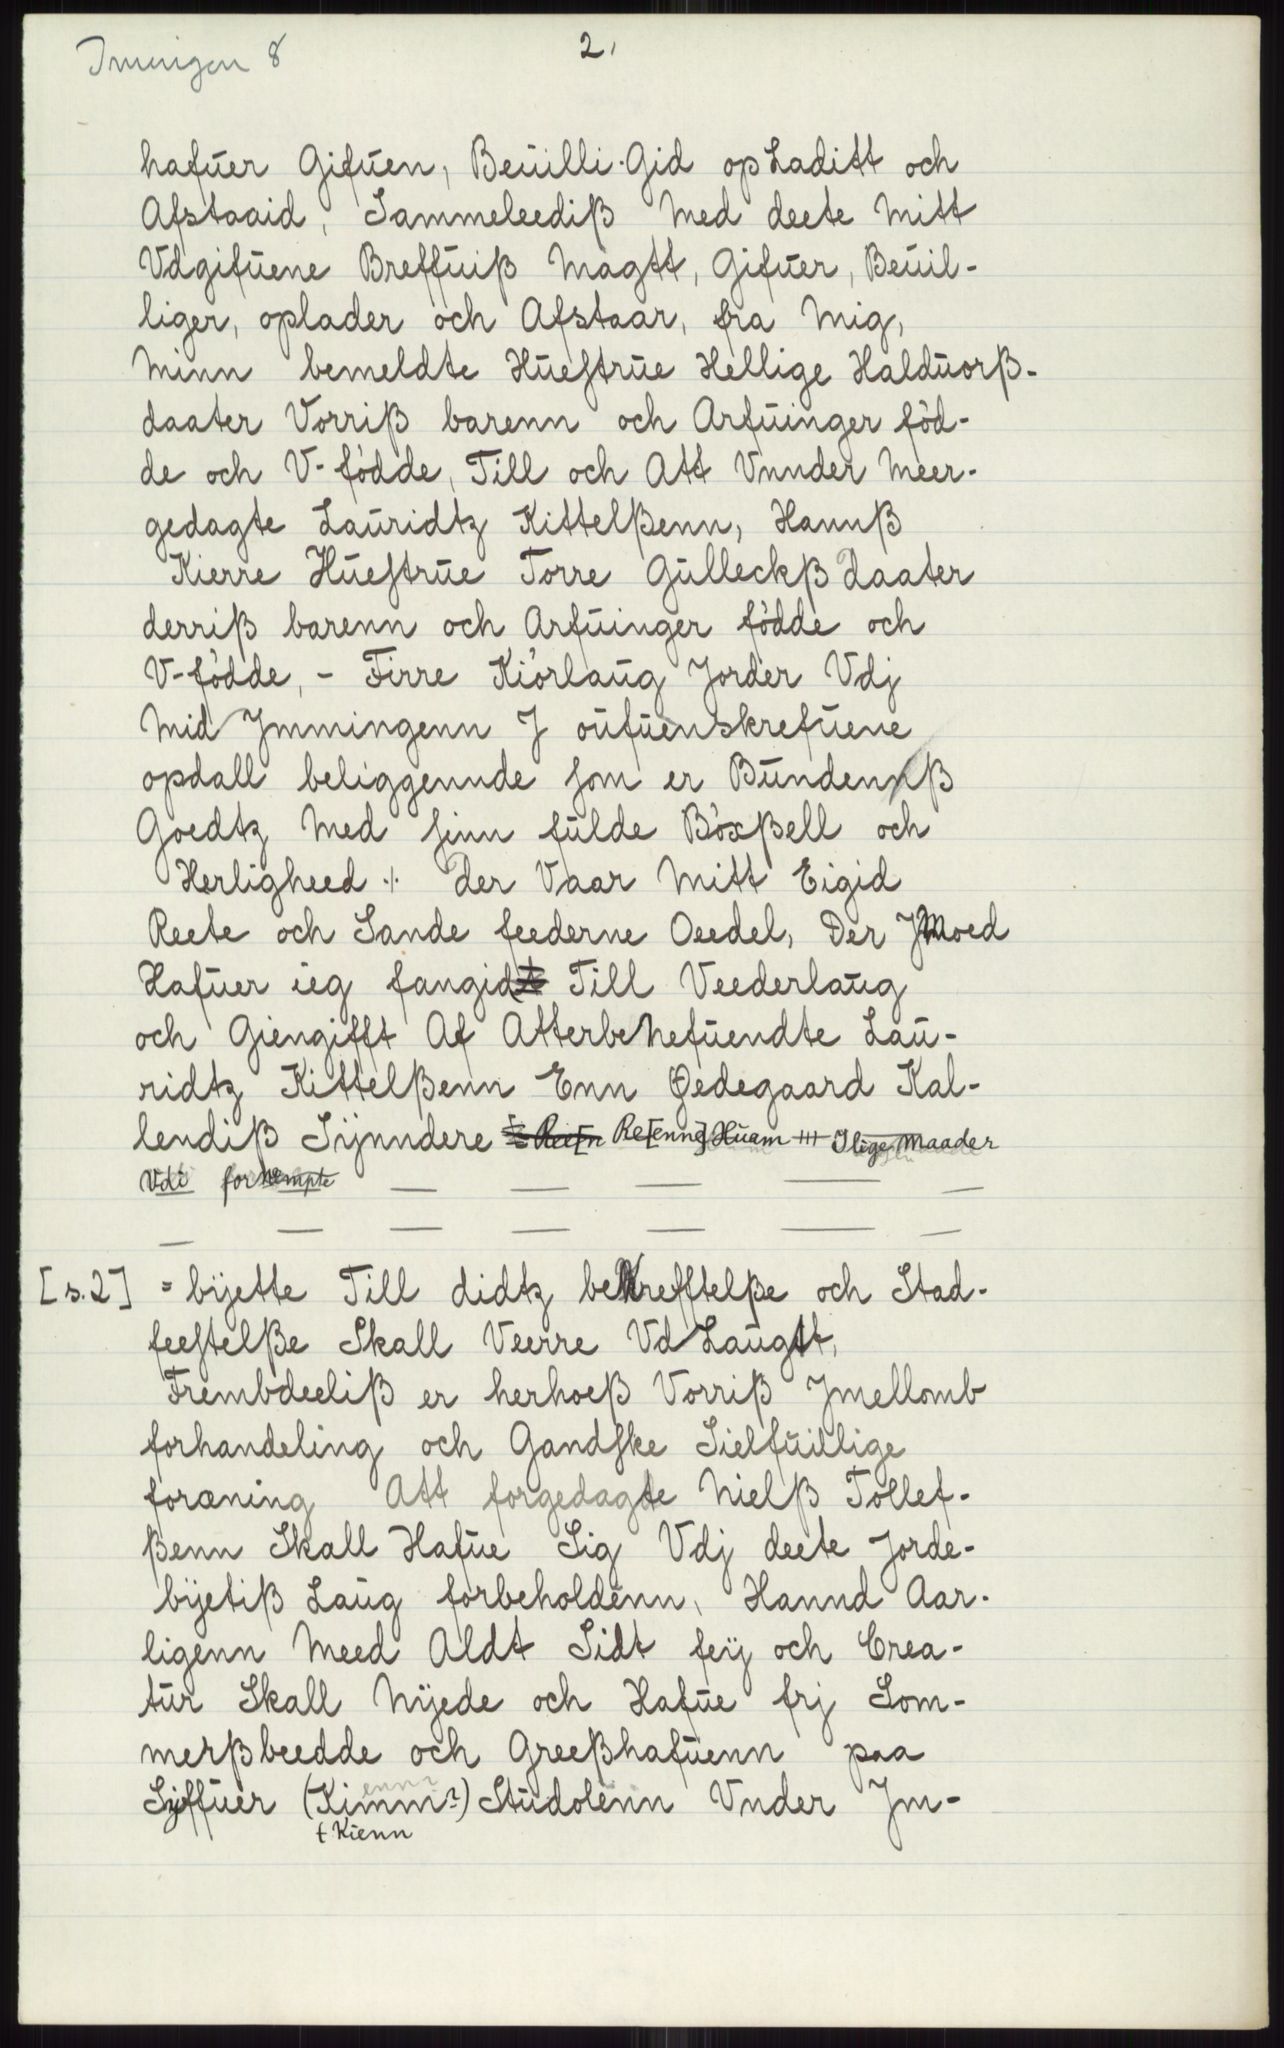 Imingen 8
2.
hafuer Gifuen, Beuilli-Gid opLaditt och
Afstaaid, Sammeleediß Med deete Mitt
Vdgifuene Breffuiß Magtt, Gifuer, Beuil-
liger, oplader och Afstaar, fra Mig,
Minn bemeldte Huestrue Hellige Halduorß-
daater Vorriß barenn och Arfuinger föd-
de och V-födde, Till och Att Vnnder Meer-
gedagte Lauridtz Kittelßenn, Hannß
Kierre Huestrue Torre Gulleckß daater
derriß barenn och Arfuinger födde och
V-födde, - Firre Kiörlaug Jorder Vdj
Mid Jmmingenn J oufuenskrefuene
opdall beliggennde som er Bundennß
Goedtz Med sinn fulde Böxßell och
Herligheed ⁒ der Vaar Mitt Eigid
Reete och Sande feederne Oeedel, Der JMoed
Hafuer ieg fangid Till Veederlaug
och Giengifft Af Atterbenefuendte Lau-
ridtz Kittelßenn Enn Ødegaard Kal-
lendiß Sijnndere Re[enne] Huam Ilige Maader
Vdi fornempte
[s. 2] = bijette Till didtz beKrefftelße och Stad-
feestelße Skall Veerre Vd Laugtt,
Frembdeeliß er herhoeß Vorriß Jmellomb
forhandeling och Gandske Sielfuillige
foræning Att forgedagte Nielß Tollef-
ßenn Skall Hafue Sig Vdj deete Jorde-
bijetiß Laug forbeholdenn, Hannd Aar-
ligenn Meed Aldt Sidt feij och Crea-
tur Skall Nijede och Hafue frj Som-
merßbeedde och Greeßhafuenn paa
Sijffuer (Kimm?) Studolenn Vnder Jm-
enn?
t Kienn